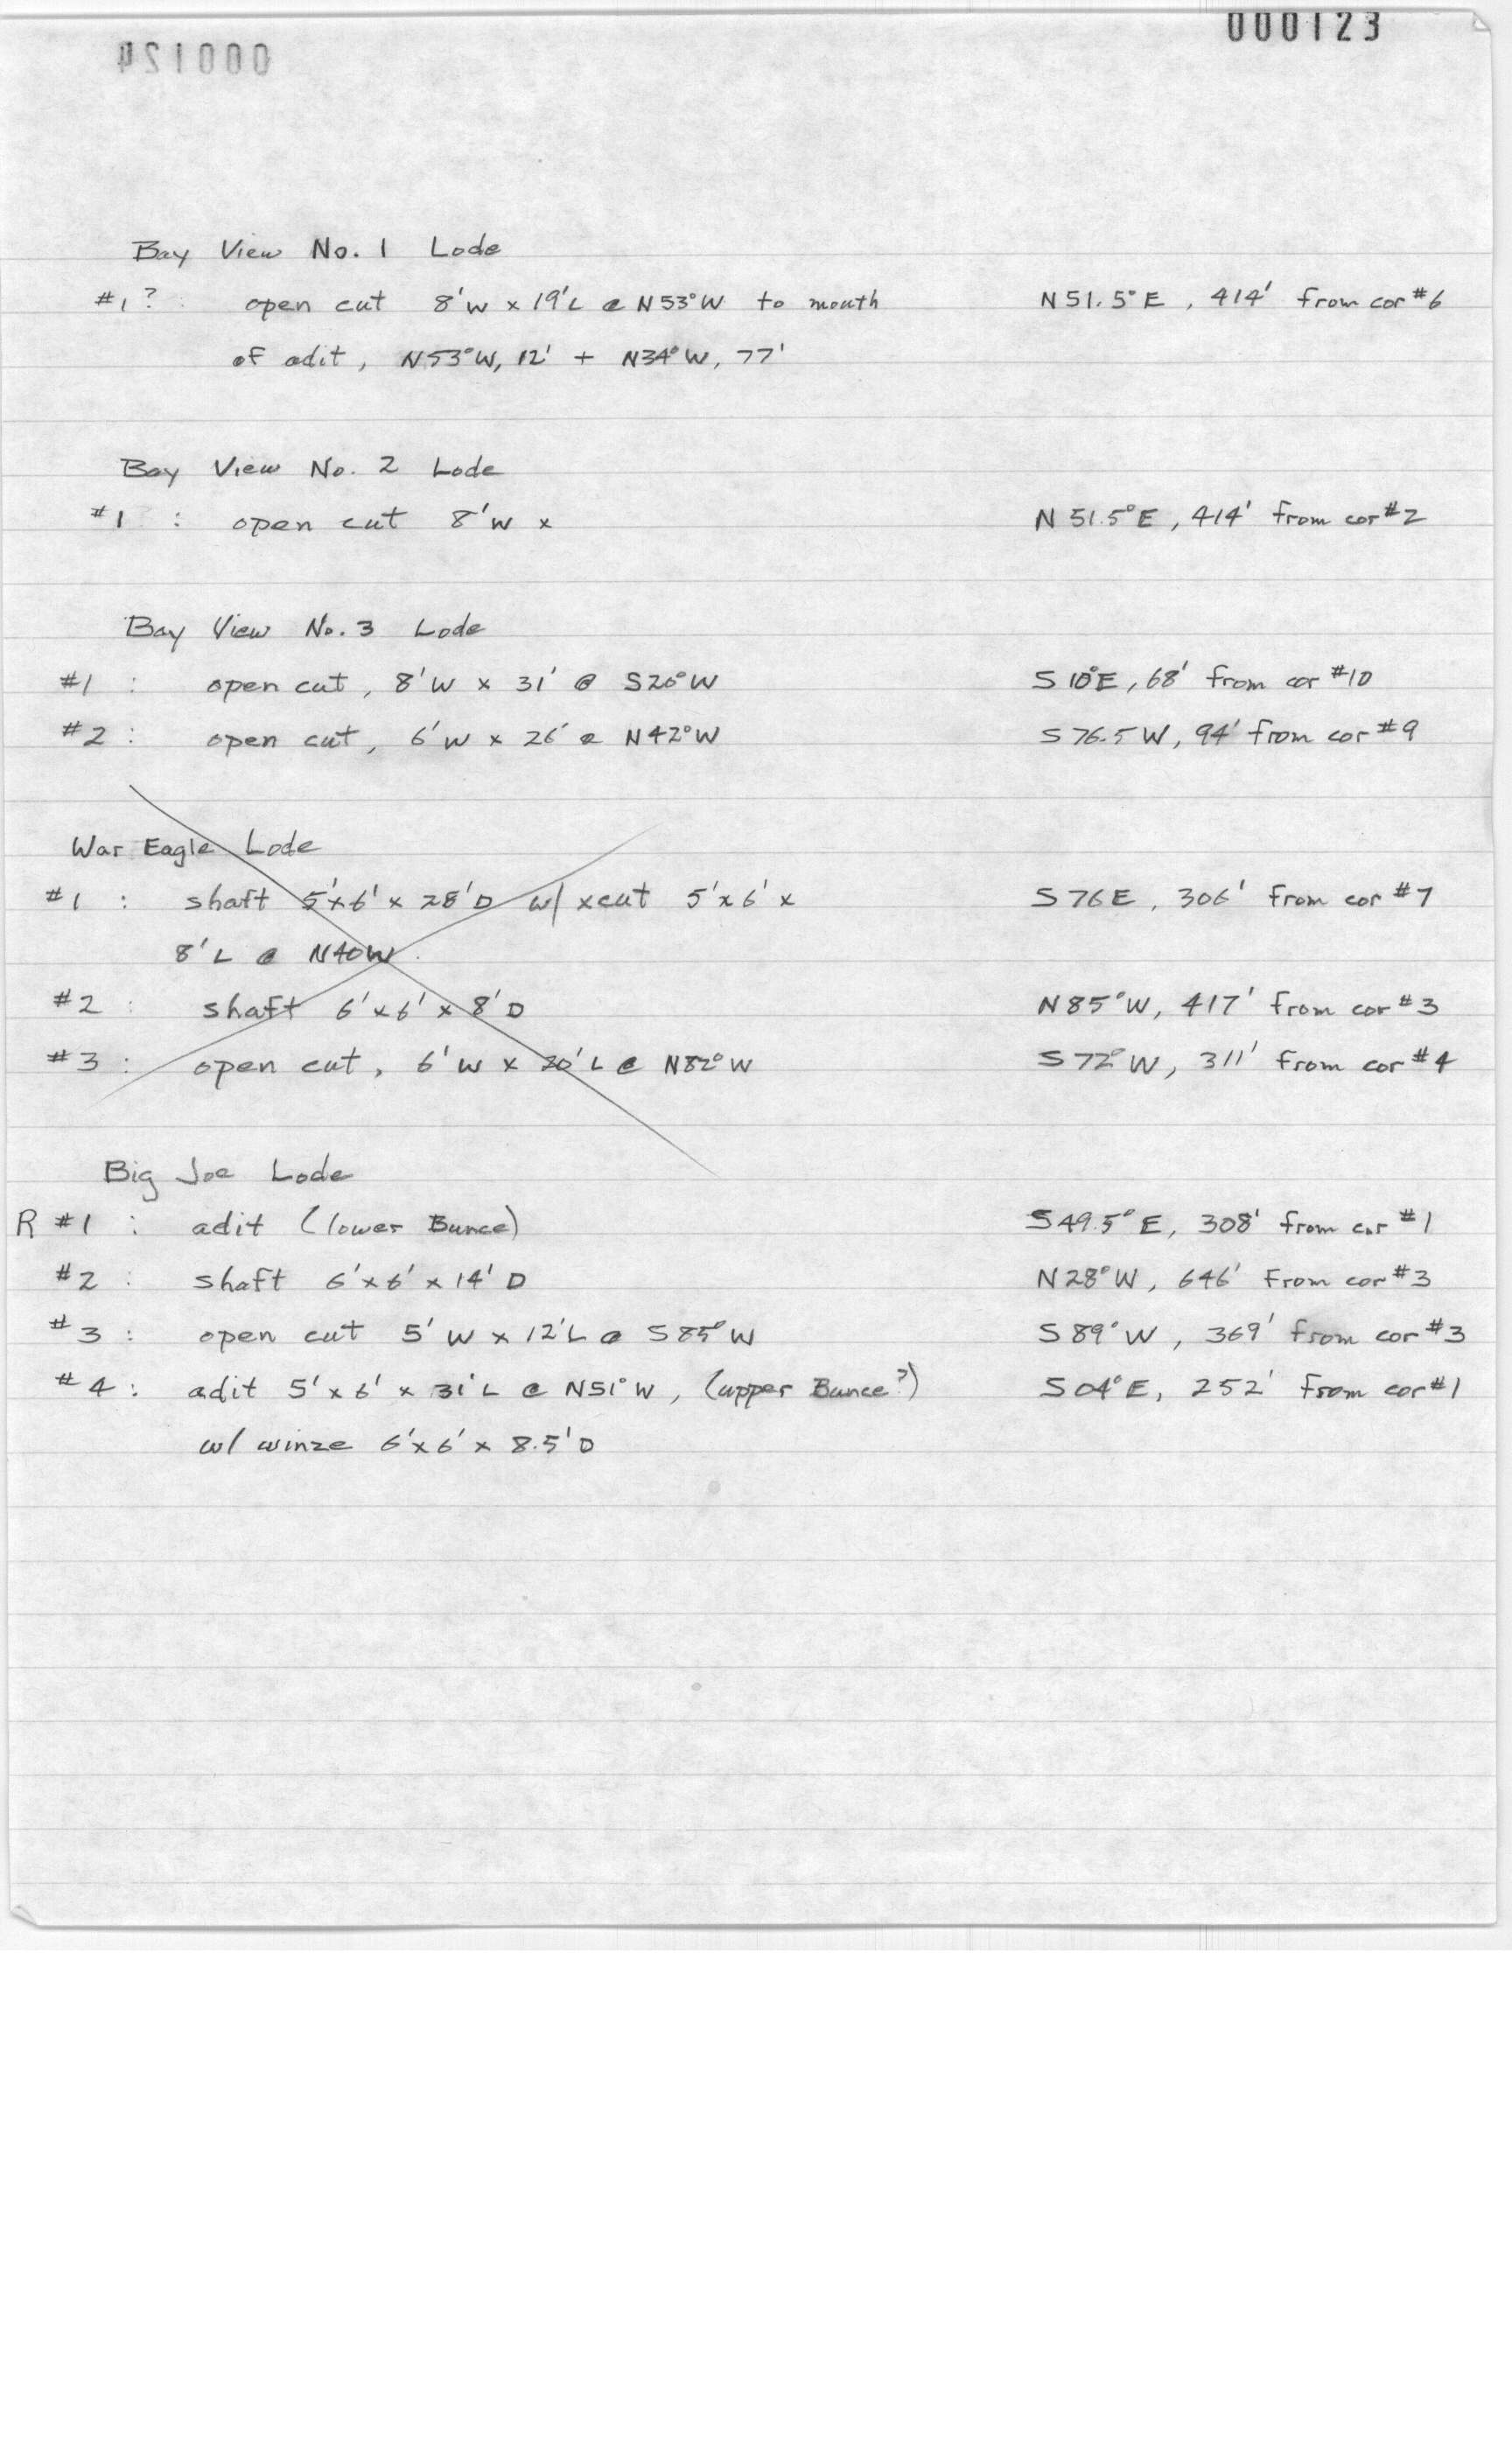 000123
000124
Bay View No. 1 Lode
#1? : open cut 8'W x 19'L @ N53°W to mouth N51.5°E, 414' from cor #6
of adit, N53°W, 12' + N34°W, 77'
Bay View No. 2 Lode
#1 : open cut 8'W x N 51.5°E, 414' from cor #2
Bay View No. 3 Lode
#1 : open cut, 8'W x 31' @ S20°W S 10°E, 68' from cor #10
#2 : open cut, 6'W x 26' @ N42°W S 76.5 W, 94' from cor #9
War Eagle Lode
#1 : shaft 5'x6' x 28'D w/ xcut 5'x6' x S 76 E, 306' from cor #7
8'L @ N40W.
#2 : shaft 6'x6' x 8'D N85°W, 417' from cor #3
#3 : open cut, 6'W x 20'L @ N82°W S 72°W, 311' from cor #4
Big Joe Lode
R #1 : adit (lower Bunce) S49.5°E, 308' from cor #1
#2 : shaft 6'x6' x 14'D N28°W, 646' from cor #3
#3 : open cut 5'W x 12'L @ S85°W S 89°W, 369' from cor #3
#4 : adit 5'x6' x 31'L @ N51°W, (upper Bunce?) S 04°E, 252' from cor #1
w/ winze 6'x6' x 8.5'D